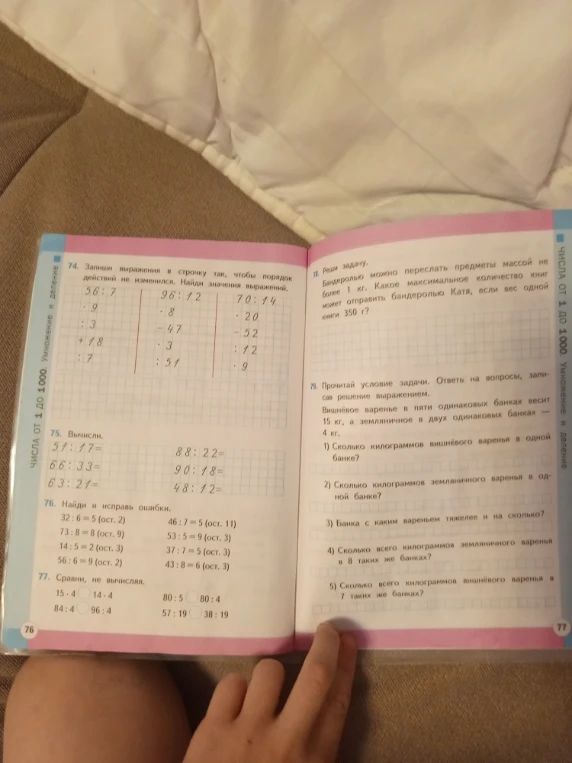 ЧИСЛА ОТ 1 ДО 1000. Умножение и деление
74. Запиши выражения в строчку так, чтобы порядок
действий не изменился. Найди значения выражений.
56 : 7 96 : 12 70 : 14
· 9 · 8 · 20
: 3 − 47 − 52
+ 18 · 3 : 12
: 7 : 51 · 9
75. Вычисли.
51 : 17 = 88 : 22 =
66 : 33 = 90 : 18 =
63 : 21 = 48 : 12 =
76. Найди и исправь ошибки.
32 : 6 = 5 (ост. 2) 46 : 7 = 5 (ост. 11)
73 : 8 = 8 (ост. 9) 53 : 5 = 9 (ост. 3)
14 : 5 = 2 (ост. 3) 37 : 7 = 5 (ост. 3)
56 : 6 = 9 (ост. 2) 43 : 8 = 6 (ост. 3)
77. Сравни, не вычисляя.
15 · 4 14 · 4 80 : 5 80 : 4
84 : 4 96 : 4 57 : 19 38 : 19
76
78. Реши задачу.
Бандеролью можно переслать предметы массой не
более 1 кг. Какое максимальное количество книг
может отправить бандеролью Катя, если вес одной
книги 350 г?
79. Прочитай условие задачи. Ответь на вопросы, запи-
сав решение выражением.
Вишнёвое варенье в пяти одинаковых банках весит
15 кг, а земляничное в двух одинаковых банках —
4 кг.
1) Сколько килограммов вишнёвого варенья в одной
банке?
2) Сколько килограммов земляничного варенья в од-
ной банке?
3) Банка с каким вареньем тяжелее и на сколько?
4) Сколько всего килограммов земляничного варенья
в 8 таких же банках?
5) Сколько всего килограммов вишнёвого варенья в
7 таких же банках?
77
ЧИСЛА ОТ 1 ДО 1000. Умножение и деление